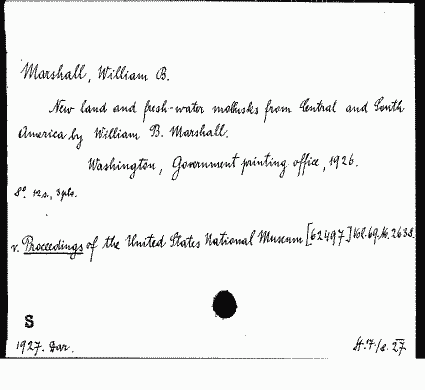 Marshall, William B.
New land and fresh-water mollusks from Central and South
America by William B. Marshall.
Washington, Government printing office, 1926.
8°. 12 s., 3 pls.
v. Proceedings of the United States National Museum [62497] Vol. 69, No. 2638.
S
1927. Dar.